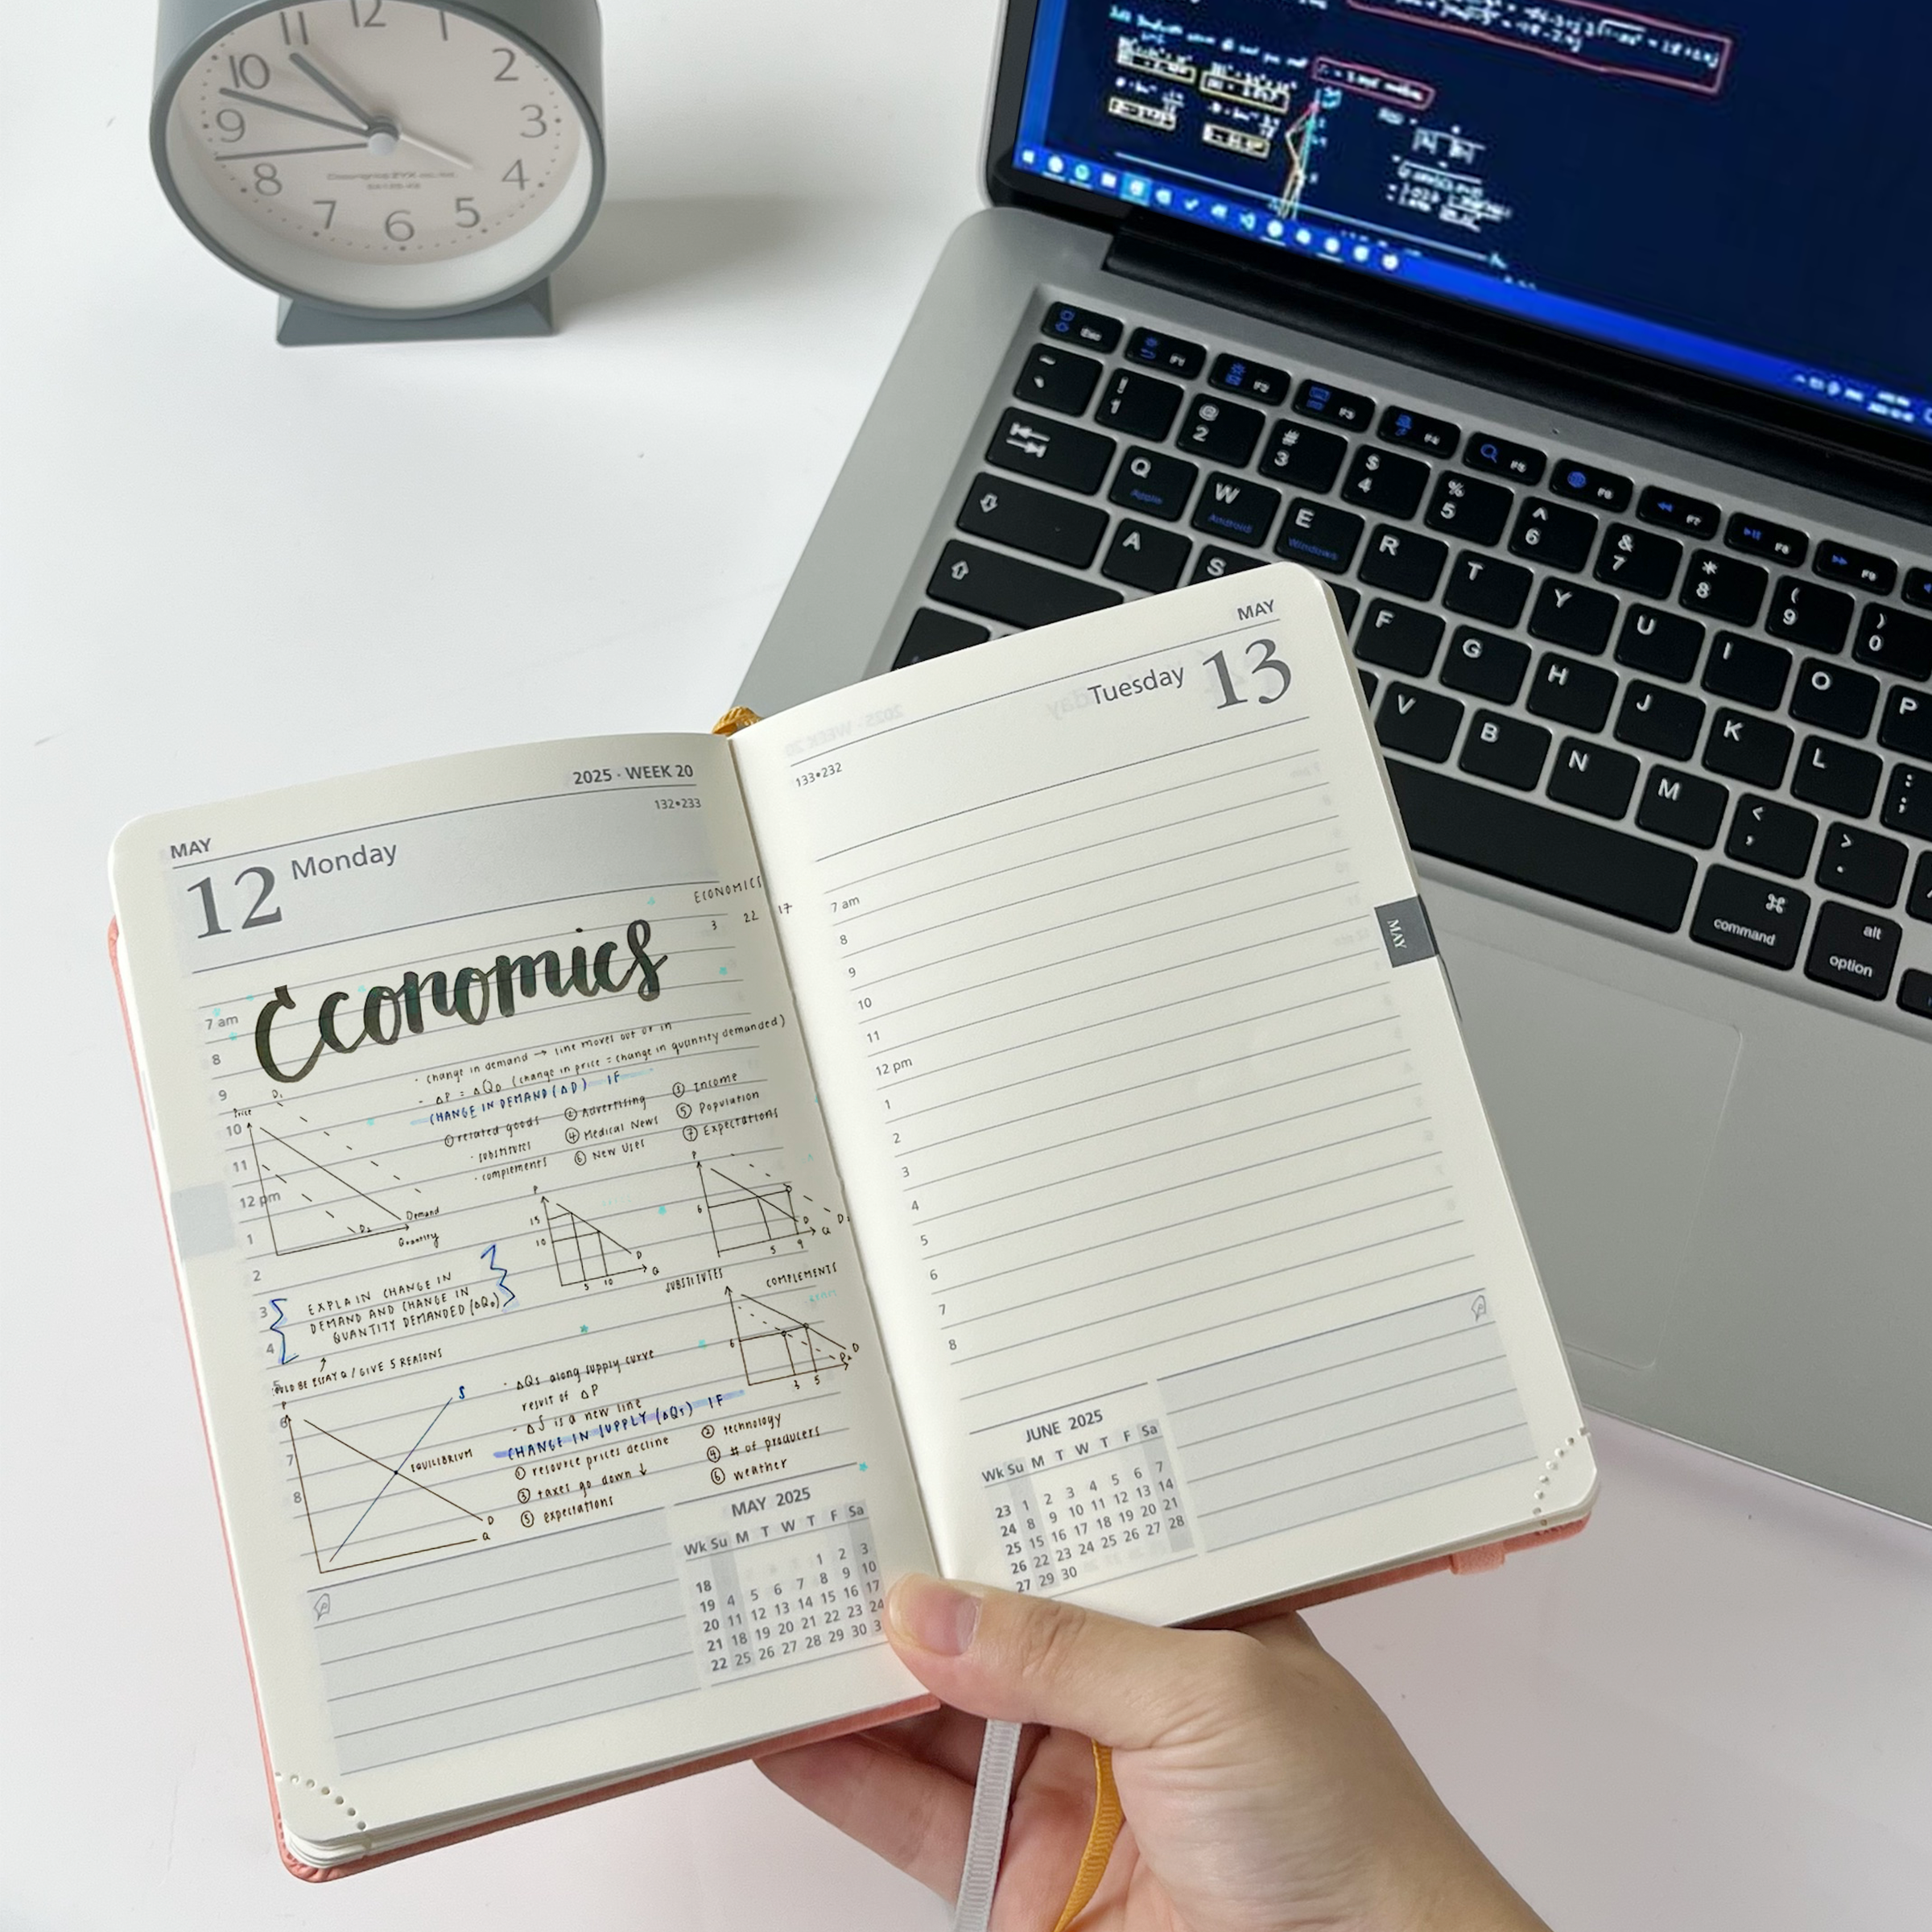 11 12 1
10 2
9 3
8 4
7 6 5
esc F1 F2 F3 F4 F5 F6 F7 F8 F9
~ `
! 1 @ 2 # 3 $ 4 % 5 ^ 6 & 7 * 8 ( 9 ) 0
Q W E R T Y U I O P
Apple Android Windows
A S F G H J K L : ;
V B N M < , > .
⌘ command alt option
2025 · WEEK 20
132•233
MAY
12 Monday
ECONOMICS
3 22 17
Economics
7 am
8
9
10
11
12 pm
1
2
3
4
5
6
7
8
· change in demand → line moves out or in
- ΔP = ΔQD (change in price = change in quantity demanded)
CHANGE IN DEMAND (ΔD) IF
① related goods ② Advertising ③ Income
· substitutes ④ Medical News ⑤ Population
· complements ⑥ New Uses ⑦ Expectations
Price D1
D2 Demand
Quantity
P
15
10
D
5 10 Q
P
6
D D2
5 9 Q
SUBSTITUTES COMPLEMENTS
6
D
D2
3 5
EXPLAIN CHANGE IN
DEMAND AND CHANGE IN
QUANTITY DEMANDED (ΔQD)
↑
COULD BE ESSAY Q / GIVE 5 REASONS
P S
EQUILIBRIUM
D
Q
· ΔQs along supply curve
result of ΔP
- ΔS is a new line
CHANGE IN SUPPLY (ΔQs) IF
① resource prices decline ② technology
③ taxes go down ↓ ④ # of producers
⑤ expectations ⑥ weather
MAY 2025
Wk Su M T W T F Sa
18 1 2 3
19 4 5 6 7 8 9 10
20 11 12 13 14 15 16 17
21 18 19 20 21 22 23 24
22 25 26 27 28 29 30 3
MAY
Tuesday 13
133•232
7 am
8
9
10
11
12 pm
1
2
3
4
5
6
7
8
MAY
JUNE 2025
Wk Su M T W T F Sa
23 1 2 3 4 5 6 7
24 8 9 10 11 12 13 14
25 15 16 17 18 19 20 21
26 22 23 24 25 26 27 28
27 29 30